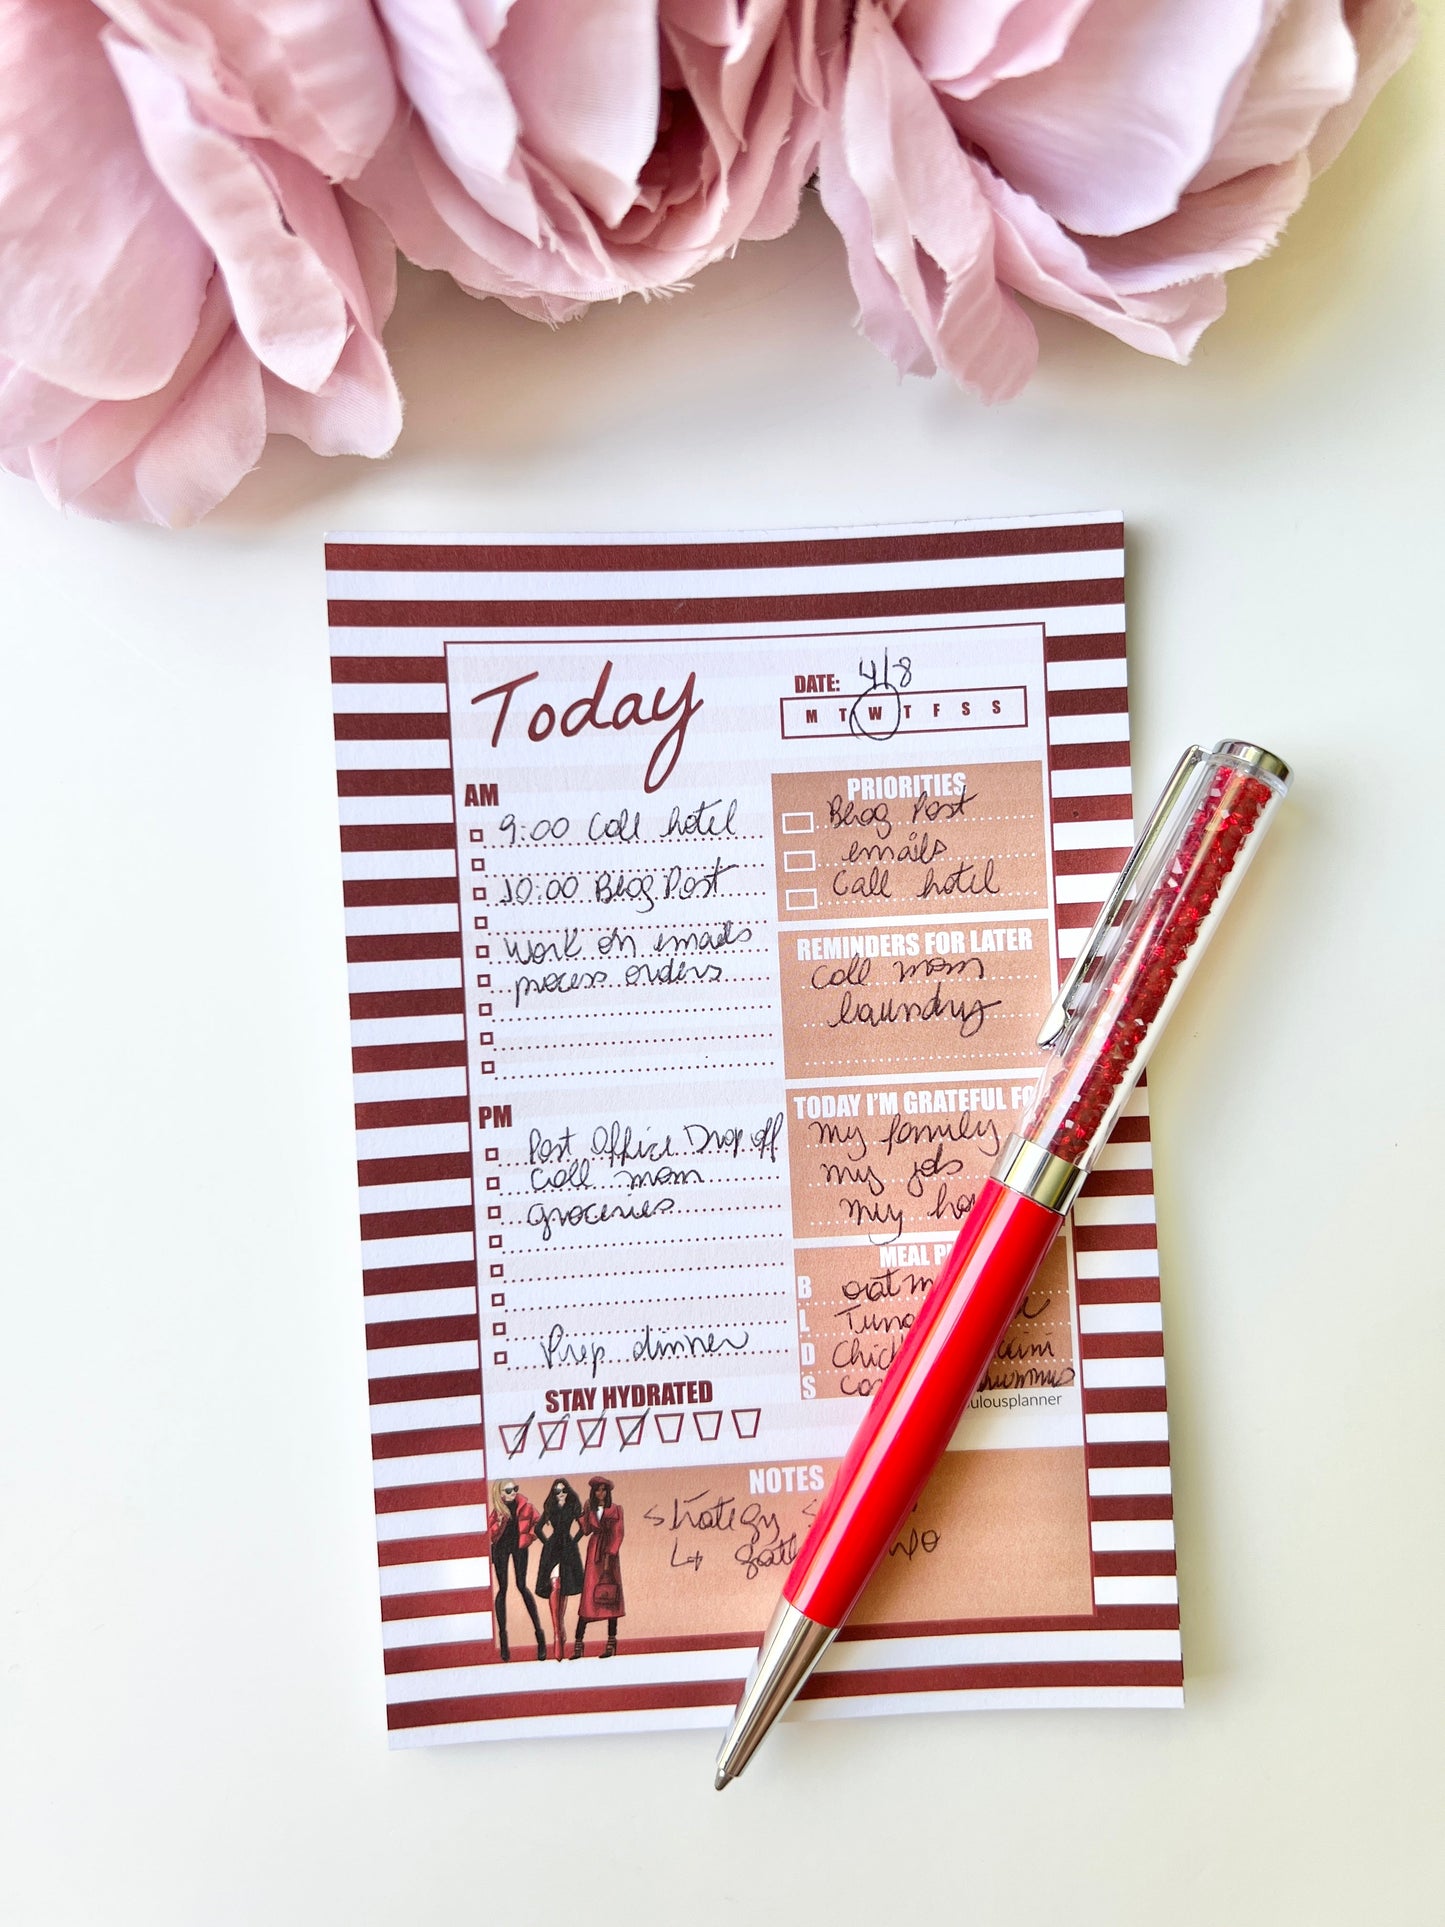 Today
DATE: 4/8
M T W T F S S
AM
9:00 Call hotel
10:00 Blog Post
work on emails
process orders
PM
Post Office Drop off
Call mom
groceries
Prep dinner
STAY HYDRATED
PRIORITIES
Blog Post
emails
Call hotel
REMINDERS FOR LATER
Call mom
laundry
TODAY I'M GRATEFUL
my family
my job
my
MEAL
B
L
D
S
NOTES
strategy